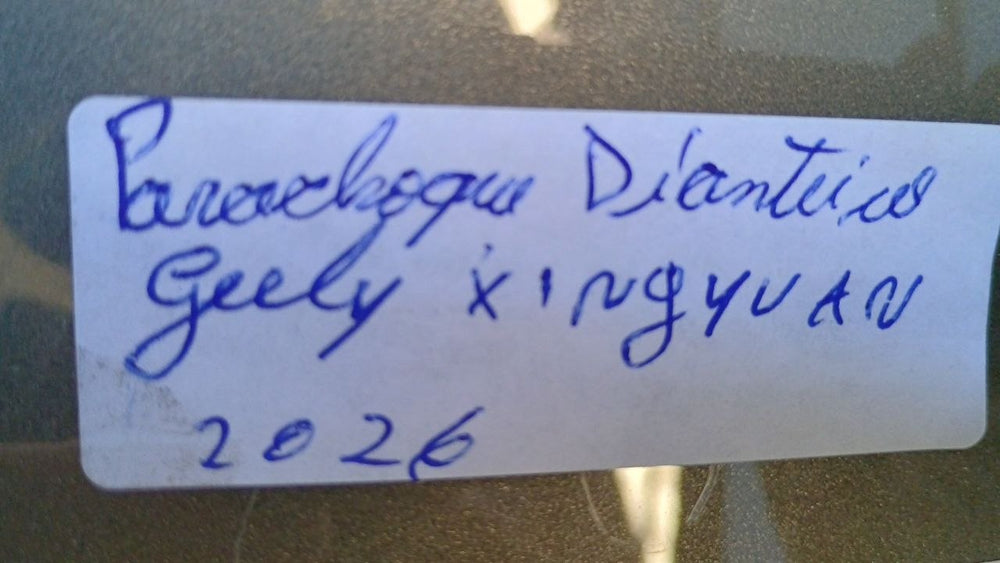 Parachoque Dianteiro
Geely XINgYUAN
2026